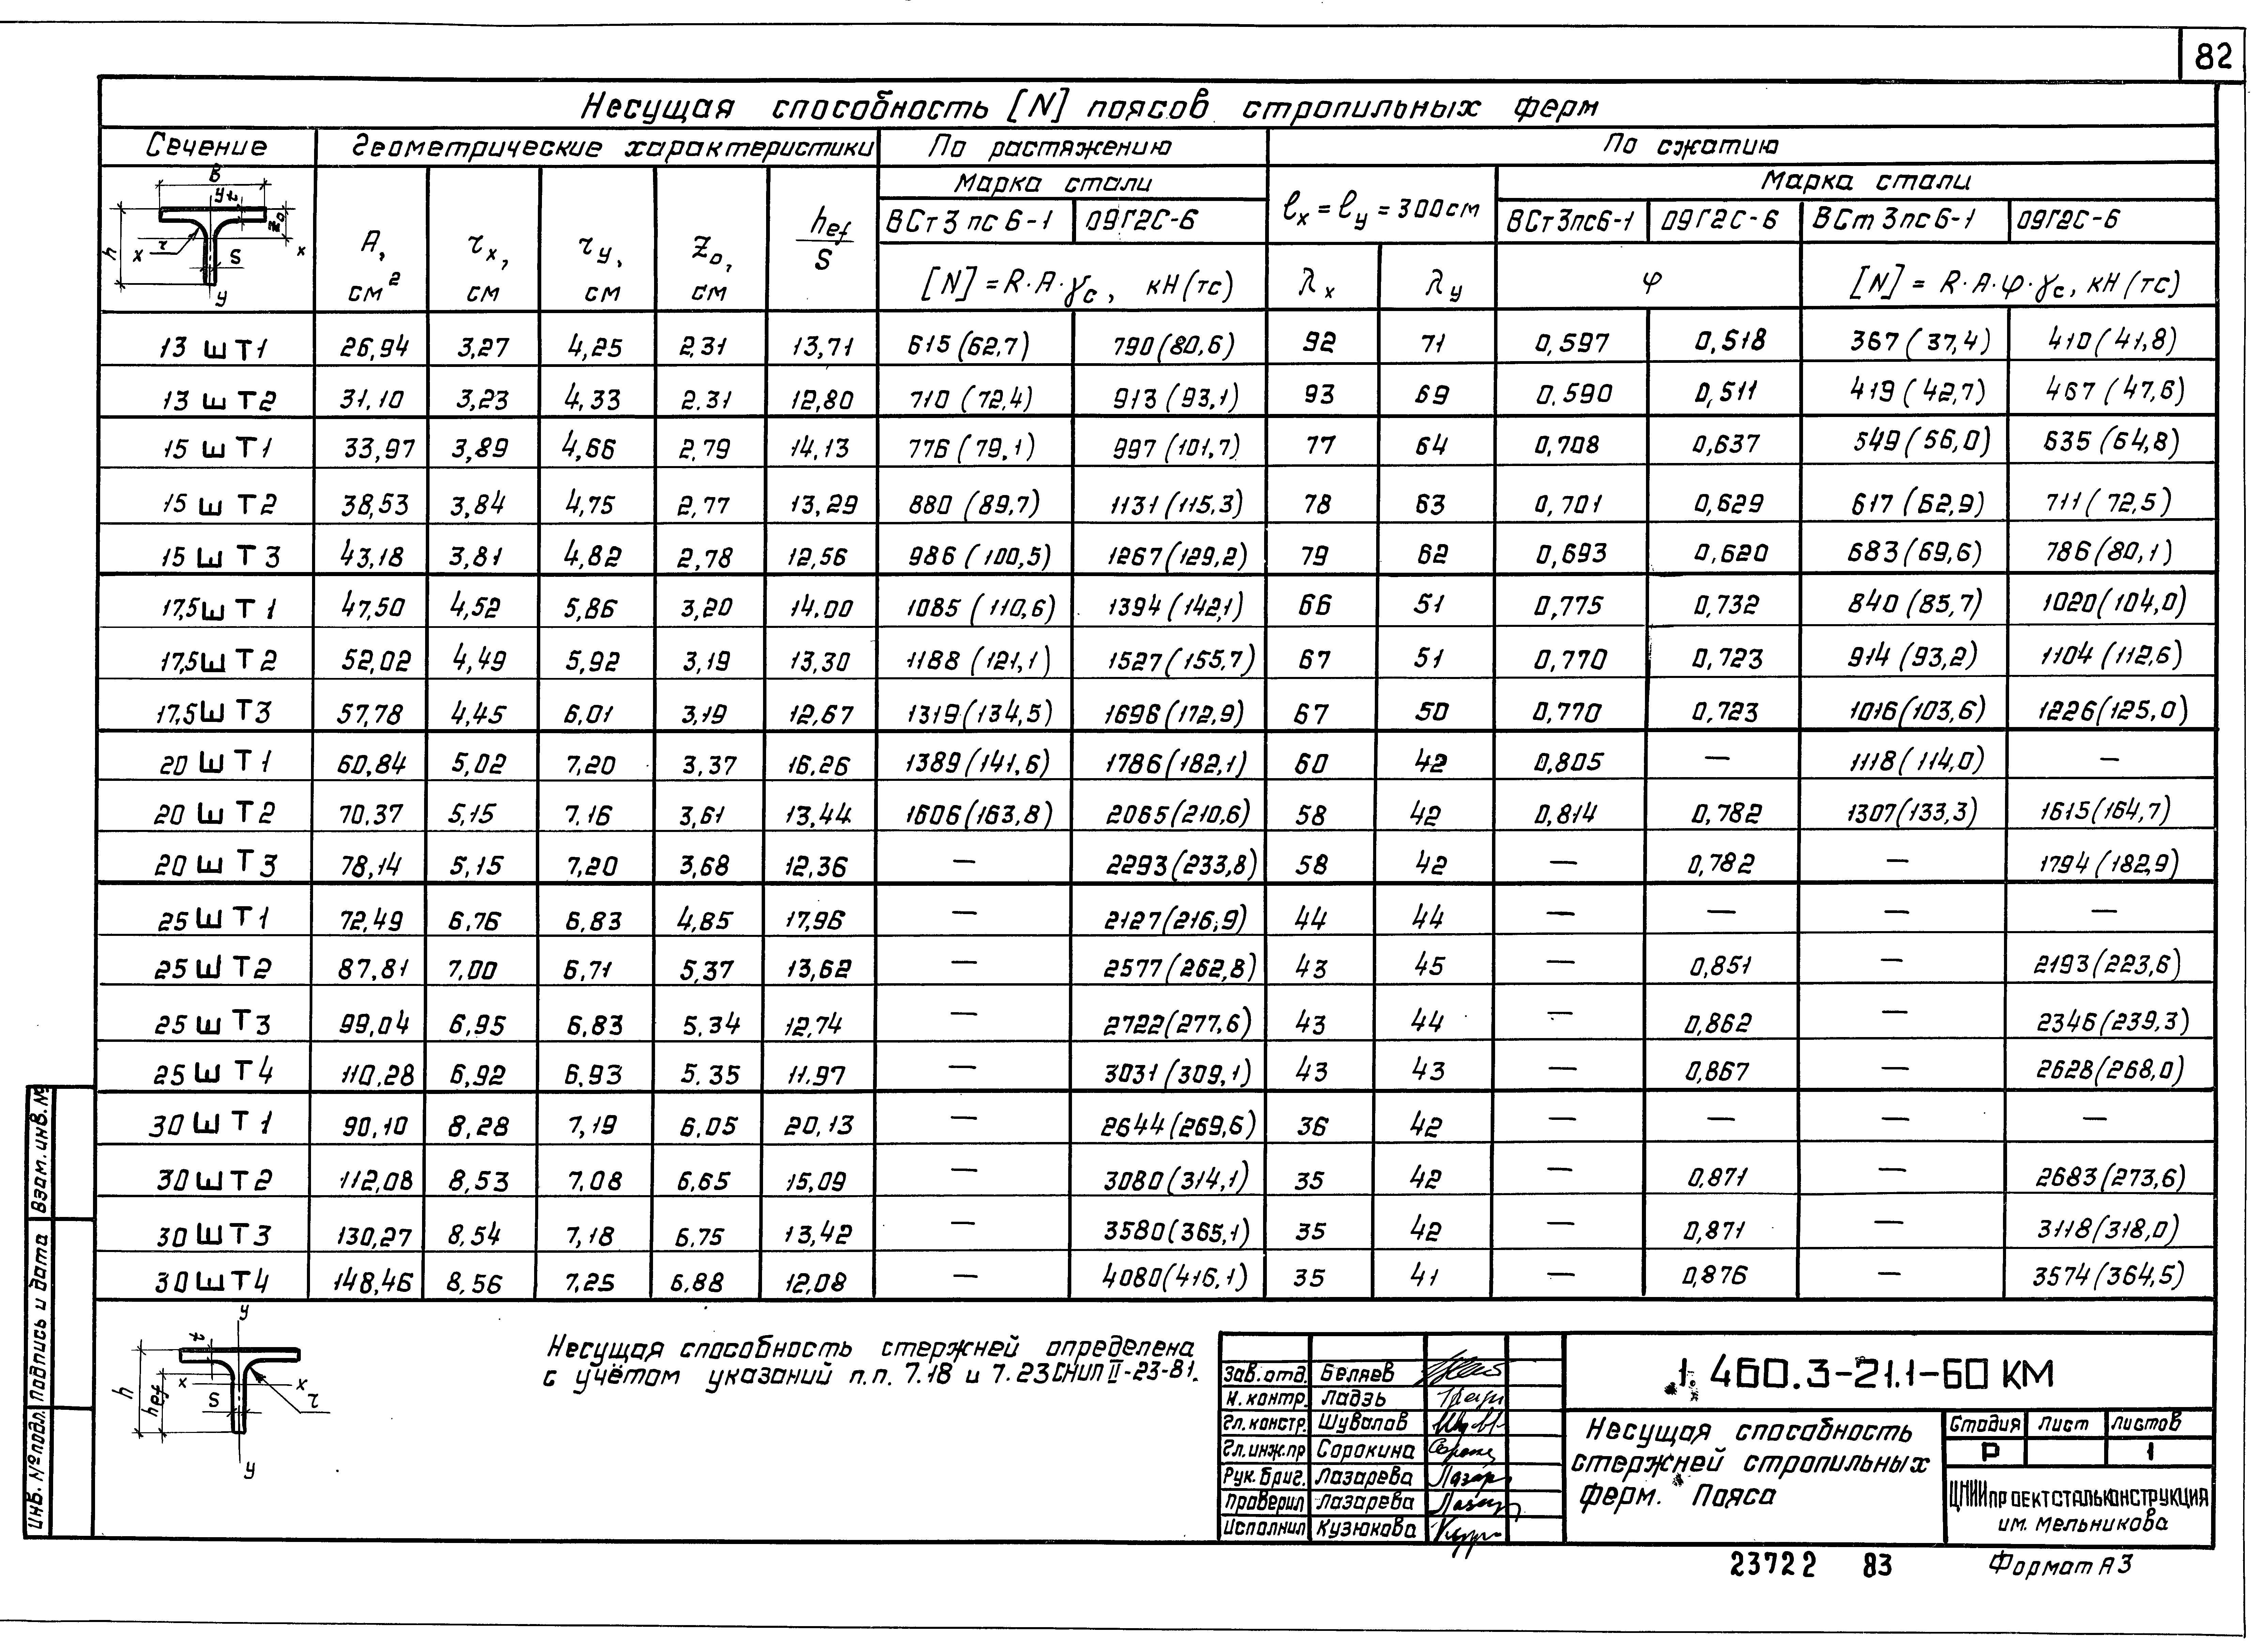 82
Несущая способность [N] поясов стропильных ферм
Сечение Геометрические характеристики По растяжению По сжатию
B y t z₀ h x r S x y
A, см² rₓ, см r_y, см z₀, см h_ef/S
Марка стали ℓₓ = ℓ_y = 300см Марка стали
ВСт3пс6-1 09Г2С-6 ВСт3пс6-1 09Г2С-6 ВСт3пс6-1 09Г2С-6
[N] = R·A·γc, кН(тс) λₓ λ_y φ [N] = R·A·φ·γc, кН(тс)
13 ШТ1 26,94 3,27 4,25 2,31 13,71 615(62,7) 790(80,6) 92 71 0,597 0,518 367(37,4) 410(41,8)
13 ШТ2 31,10 3,23 4,33 2,31 12,80 710(72,4) 913(93,1) 93 69 0,590 0,511 419(42,7) 467(47,6)
15 ШТ1 33,97 3,89 4,66 2,79 14,13 776(79,1) 997(101,7) 77 64 0,708 0,637 549(56,0) 635(64,8)
15 ШТ2 38,53 3,84 4,75 2,77 13,29 880(89,7) 1131(115,3) 78 63 0,701 0,629 617(62,9) 711(72,5)
15 ШТ3 43,18 3,81 4,82 2,78 12,56 986(100,5) 1267(129,2) 79 62 0,693 0,620 683(69,6) 786(80,1)
17,5ШТ1 47,50 4,52 5,86 3,20 14,00 1085(110,6) 1394(142,1) 66 51 0,775 0,732 840(85,7) 1020(104,0)
17,5ШТ2 52,02 4,49 5,92 3,19 13,30 1188(121,1) 1527(155,7) 67 51 0,770 0,723 914(93,2) 1104(112,6)
17,5ШТ3 57,78 4,45 6,01 3,19 12,67 1319(134,5) 1696(172,9) 67 50 0,770 0,723 1016(103,6) 1226(125,0)
20 ШТ1 60,84 5,02 7,20 3,37 16,26 1389(141,6) 1786(182,1) 60 42 0,805 — 1118(114,0) —
20 ШТ2 70,37 5,15 7,16 3,61 13,44 1606(163,8) 2065(210,6) 58 42 0,814 0,782 1307(133,3) 1615(164,7)
20 ШТ3 78,14 5,15 7,20 3,68 12,36 — 2293(233,8) 58 42 — 0,782 — 1794(182,9)
25 ШТ1 72,49 6,76 6,83 4,85 17,96 — 2127(216,9) 44 44 — — — —
25 ШТ2 87,81 7,00 6,71 5,37 13,62 — 2577(262,8) 43 45 — 0,851 — 2193(223,6)
25 ШТ3 99,04 6,95 6,83 5,34 12,74 — 2722(277,6) 43 44 — 0,862 — 2346(239,3)
25 ШТ4 110,28 6,92 6,93 5,35 11,97 — 3031(309,1) 43 43 — 0,867 — 2628(268,0)
30 ШТ1 90,10 8,28 7,19 6,05 20,13 — 2644(269,6) 36 42 — — — —
30 ШТ2 112,08 8,53 7,08 6,65 15,09 — 3080(314,1) 35 42 — 0,871 — 2683(273,6)
30 ШТ3 130,27 8,54 7,18 6,75 13,42 — 3580(365,1) 35 42 — 0,871 — 3118(318,0)
30 ШТ4 148,46 8,56 7,25 6,88 12,08 — 4080(416,1) 35 41 — 0,876 — 3574(364,5)
y t h h_ef x x S r y
Несущая способность стержней определена
с учётом указаний п.п. 7.18 и 7.23 СНиП II-23-81.
Взам.инв.№
Подпись и дата
Инв. № подл.
Зав.отд. Беляев
Н.контр. Ладзь
Гл.констр. Шувалов
Гл.инж.пр Сорокина
Рук.бриг. Лазарева
Проверил Лазарева
Исполнил Кузюкова
1.460.3-21.1-60 КМ
Несущая способность
стержней стропильных
ферм. Пояса
Стадия Лист Листов
Р 1
ЦНИИпроектстальконструкция
им. Мельникова
23722 83 Формат А3